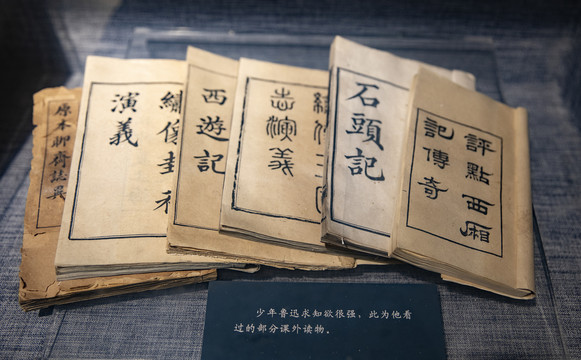 原本聊齋誌異
繡像封神
演義
西遊記
繡像三國
志演義
石頭記
評點西廂
記傳奇
少年鲁迅求知欲很强，此为他看
过的部分课外读物。